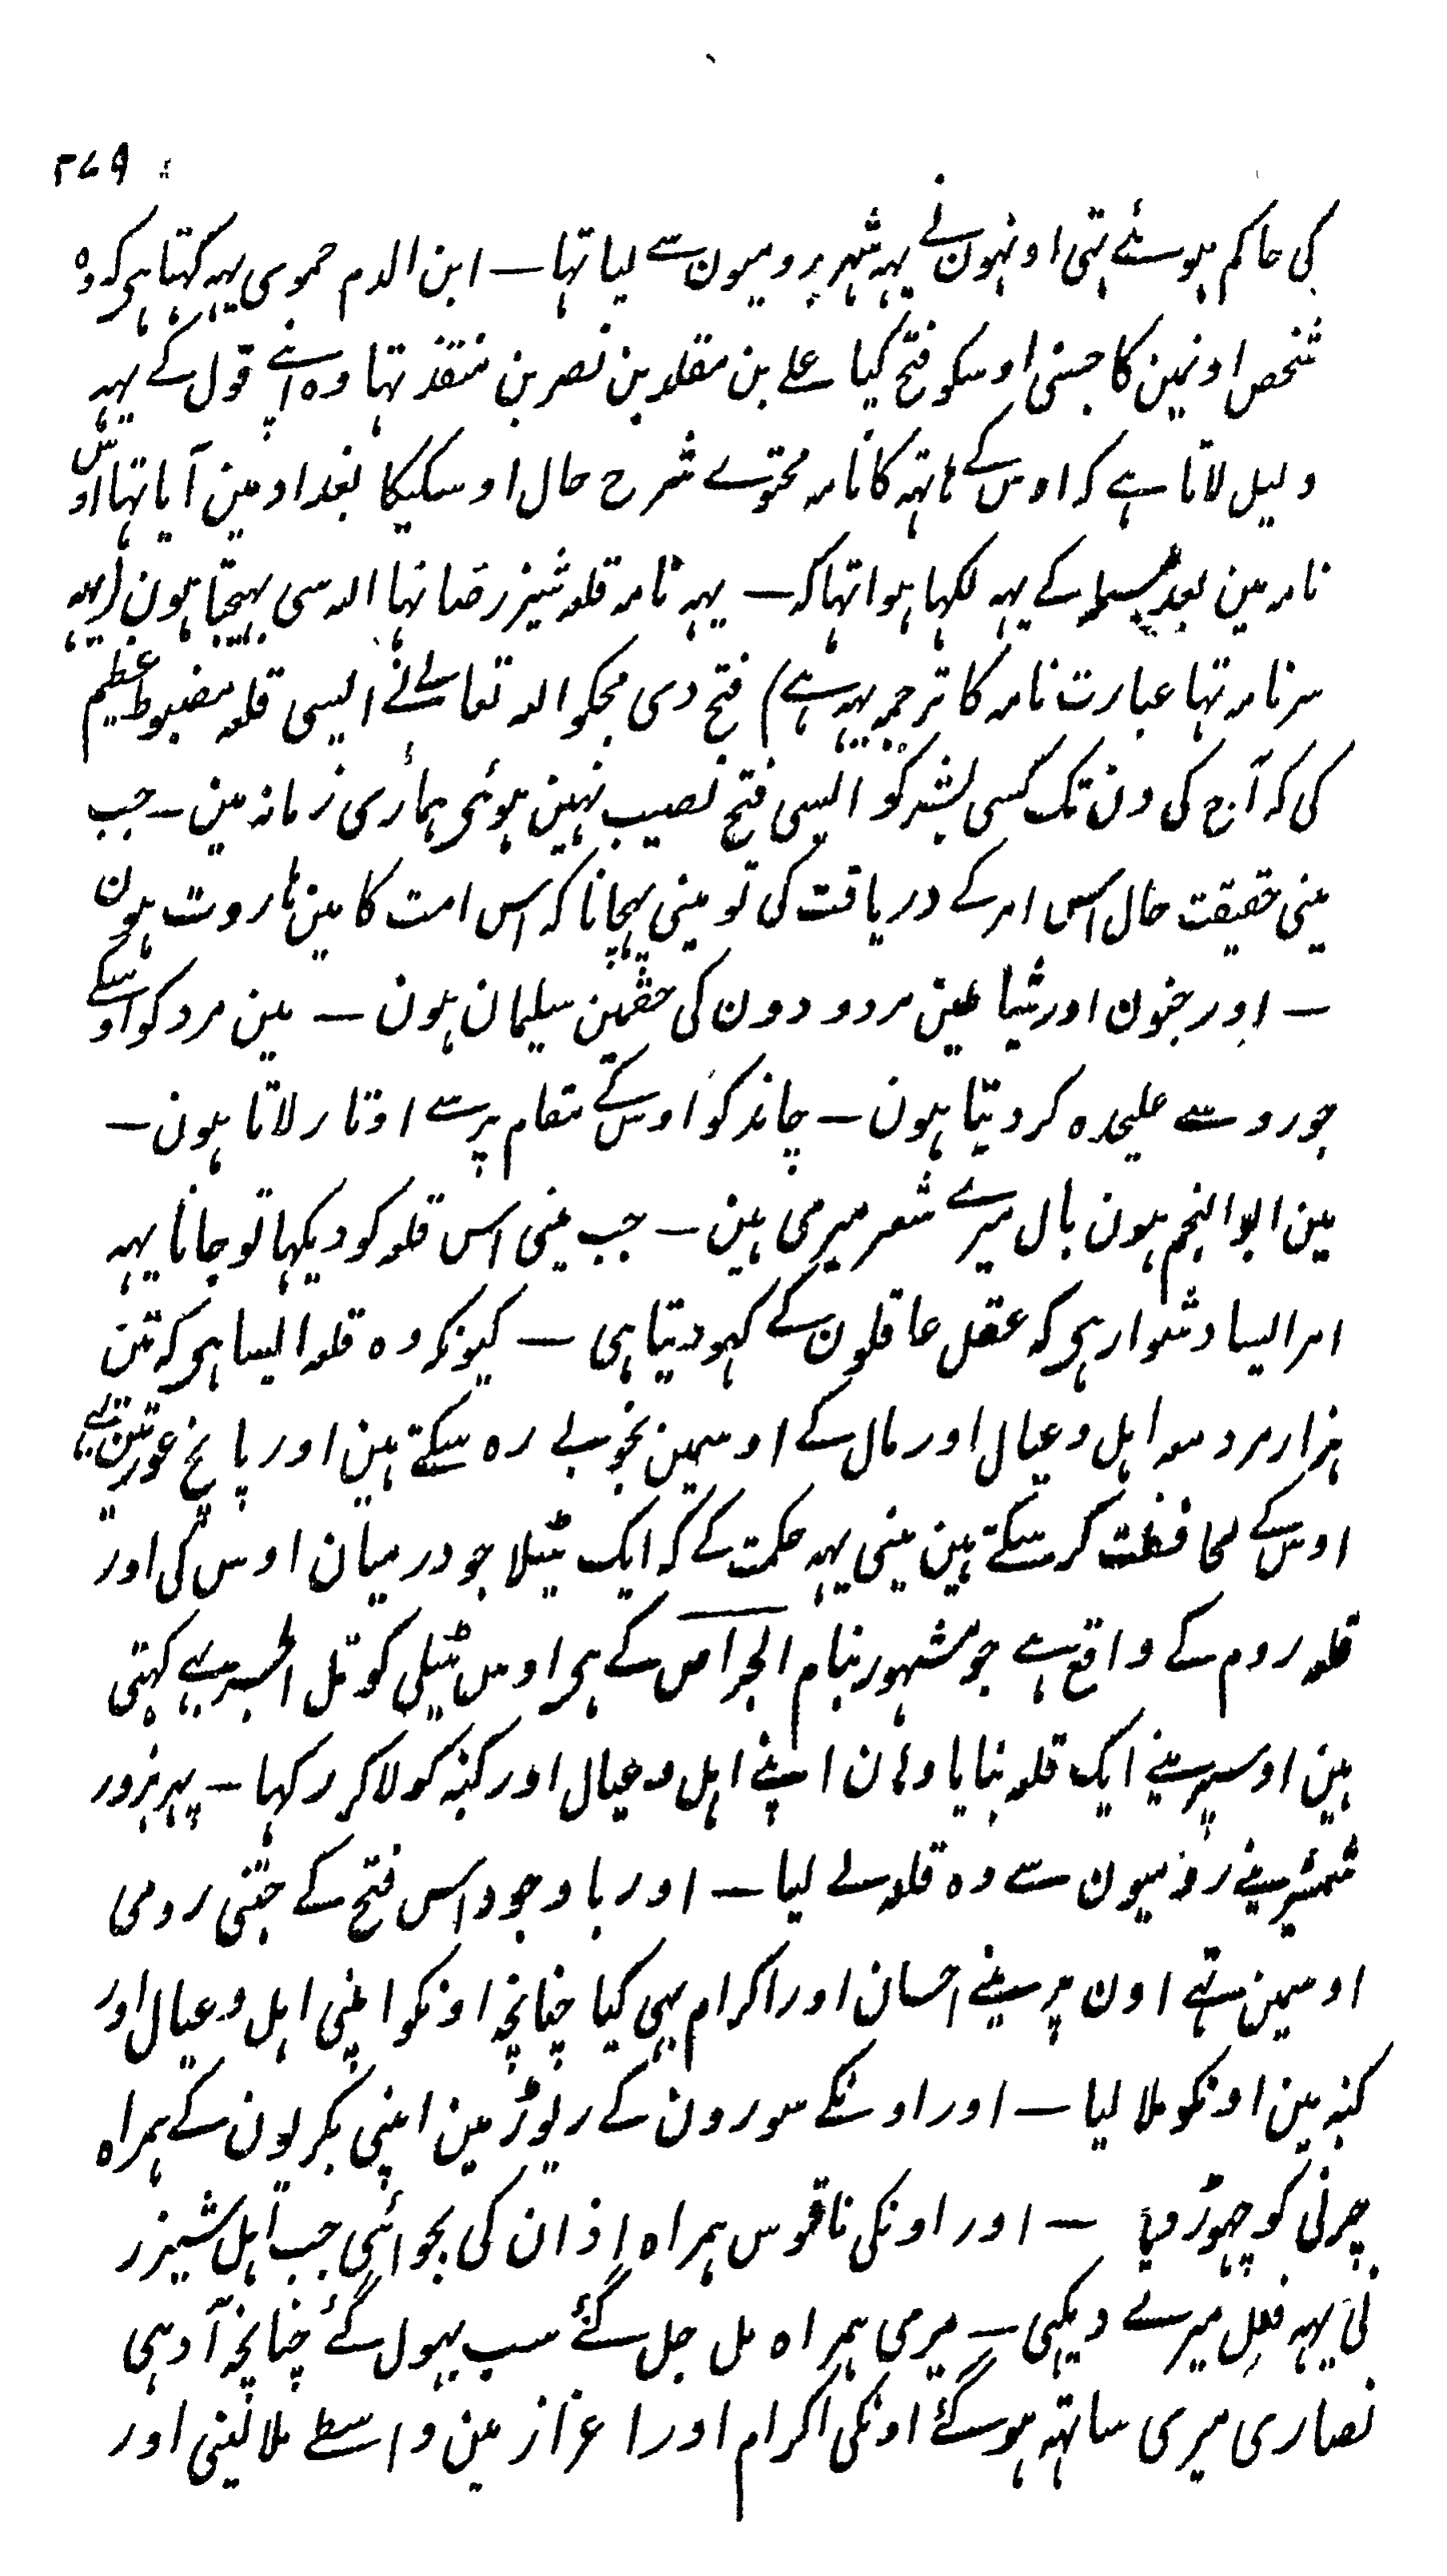 ۲۷۹
کی حاکم ہوئے تہی اونہون نے یہہ شہر رومیون سے لیا تہا – ابن الدم حموی یہہ کہتا ہی کہ وہ
شخص اونمین کا جسنی اوسکو فتح کیا علے بن مقلد بن نصر بن منقذ تہا وہ اپنے قول کے یہہ
دلیل لاتا ہے کہ اوس کے ہاتہہ کا نامہ محتوے شرح حال اوسکیکا بغداد مین آیا تہا اوس
نامہ مین بعد بسملہ کے یہہ لکہا ہوا تہا کہ – یہہ نامہ قلعہ شیزر صانہا اللہ سی بہیجتا ہون (یہہ
سرنامہ تہا عبارت نامہ کا ترجمہ یہہ ہے) فتح دی مجکو اللہ تعالےٰ نے ایسی قلعہ مضبوط عظیم
کی کہ آج کی دن تک کسی بشر کو ایسی فتح نصیب نہین ہوئی ہمارٔی زمانہ مین – جب
مینی حقیقت حال اس امر کے دریافت کی تو مینی پہچانا کہ اس امت کا مین ہاروت ہون
– اور جنون اور شیاطین مردودون کی حقمین سلیمان ہون – مین مرد کو اوسکے
جورو سے علیحدہ کر دیتا ہون – چاند کو اوس کے مقام پر سے اوتار لاتا ہون –
مین ابو النجم ہون بال میرے شعر میرمی ہین – جب مینی اس قلعہ کو دیکہا تو جانا یہہ
امر ایسا دشوار ہی کہ عقل عاقلون کے کہو دیتا ہی – کیونکہ وہ قلعہ ایسا ہی کہ تین
ہزار مرد معہ اہل و عیال اور مال کے اوسمین بخوبے رہ سکتے ہین اور پانچ عورتین
اوس کے محافظت کر سکتے ہین مینی یہہ حکمت کے کہ ایک ٹیلا جو درمیان اوس کی اور
قلعہ روم کے واقع ہے جو مشہور بنام الجراص کے ہی اوس ٹیلی کو تل الجسر بہے کہتی
ہین اوسپر مینے ایک قلعہ بنایا وہان اپنے اہل و عیال اور کنبہ کو لاکر رکہا – پہر بزور
شمشیر مینے رومیون سے وہ قلعہ لے لیا – اور باوجود اس فتح کے جتنی رومی
اوسمین تہے اون پر مینے احسان اور اکرام بہی کیا چنانچہ اونکو اپنی اہل و عیال اور
کنبہ مین اونکو ملا لیا – اور اونکے سورون کے ریوڑ مین اپنی بکریون کے ہمراہ
چرنی کو چہوڑ دیا – اور اونکی ناقوس ہمراہ اذان کی بجوائی جب اہل شیزر
نی یہہ فعل میرے دیکہی – میری ہمراہ مل جل گئے سب بہول گئے چنانچہ آدہی
نصاری میری ساتہہ ہو گئے اونکی اکرام اور اعزاز مین واسطے ملا لینی اور